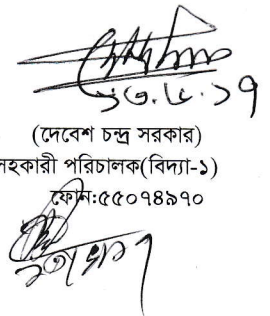 ১৩.৮.১৭
(দেবেশ চন্দ্র সরকার)
সহকারী পরিচালক(বিদ্যা-১)
ফোন:৫৫০৭৪৯৭০